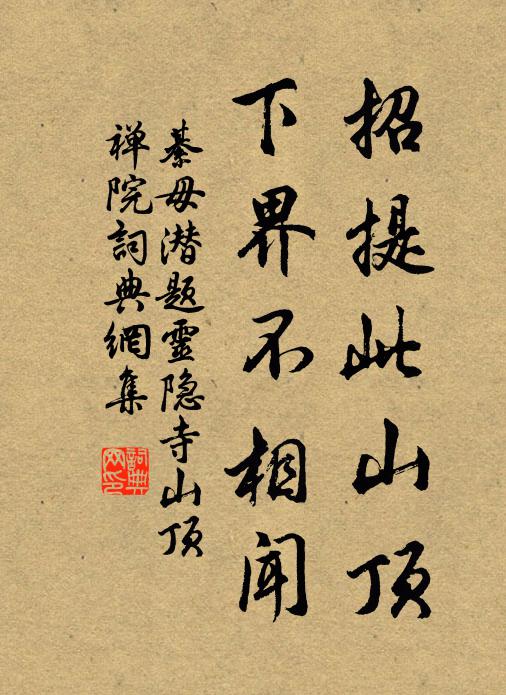 招提此山顶
下界不相闻
綦毋潜题靈隐寺山顶
禅院詞典網集
詞典
网印